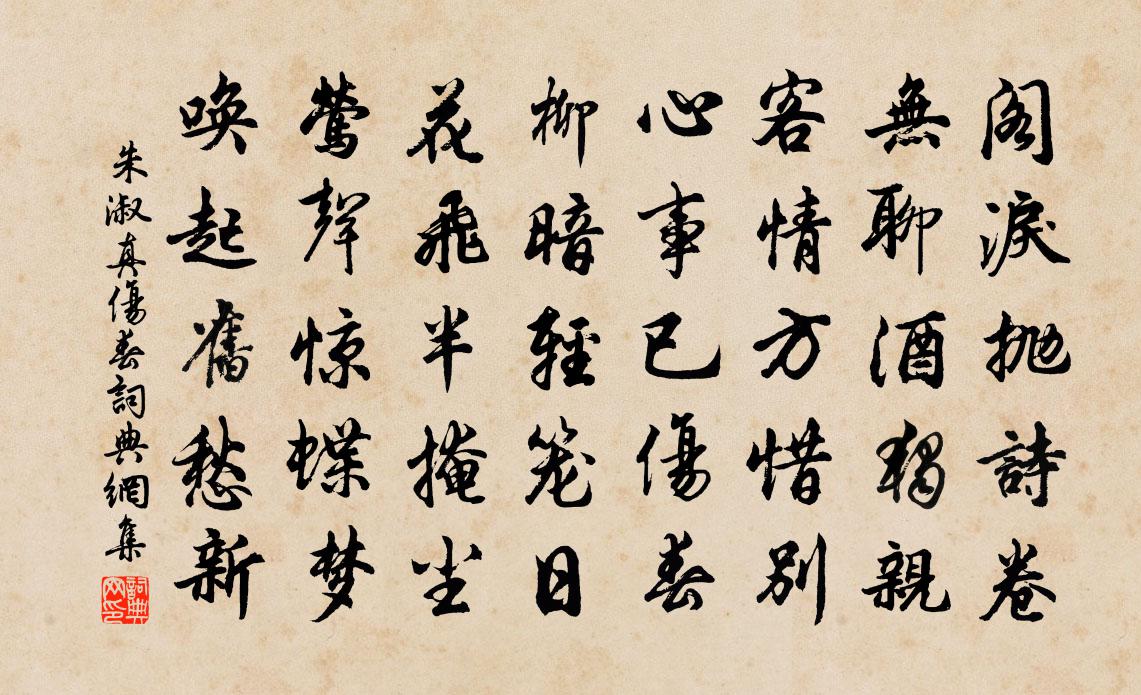 閣淚抛詩卷
無聊酒獨親
客情方惜別
心事已傷春
柳暗輕笼日
花飛半掩尘
鶯聲惊蝶梦
唤起舊愁新
朱淑真傷春詞典網集
詞典
网印